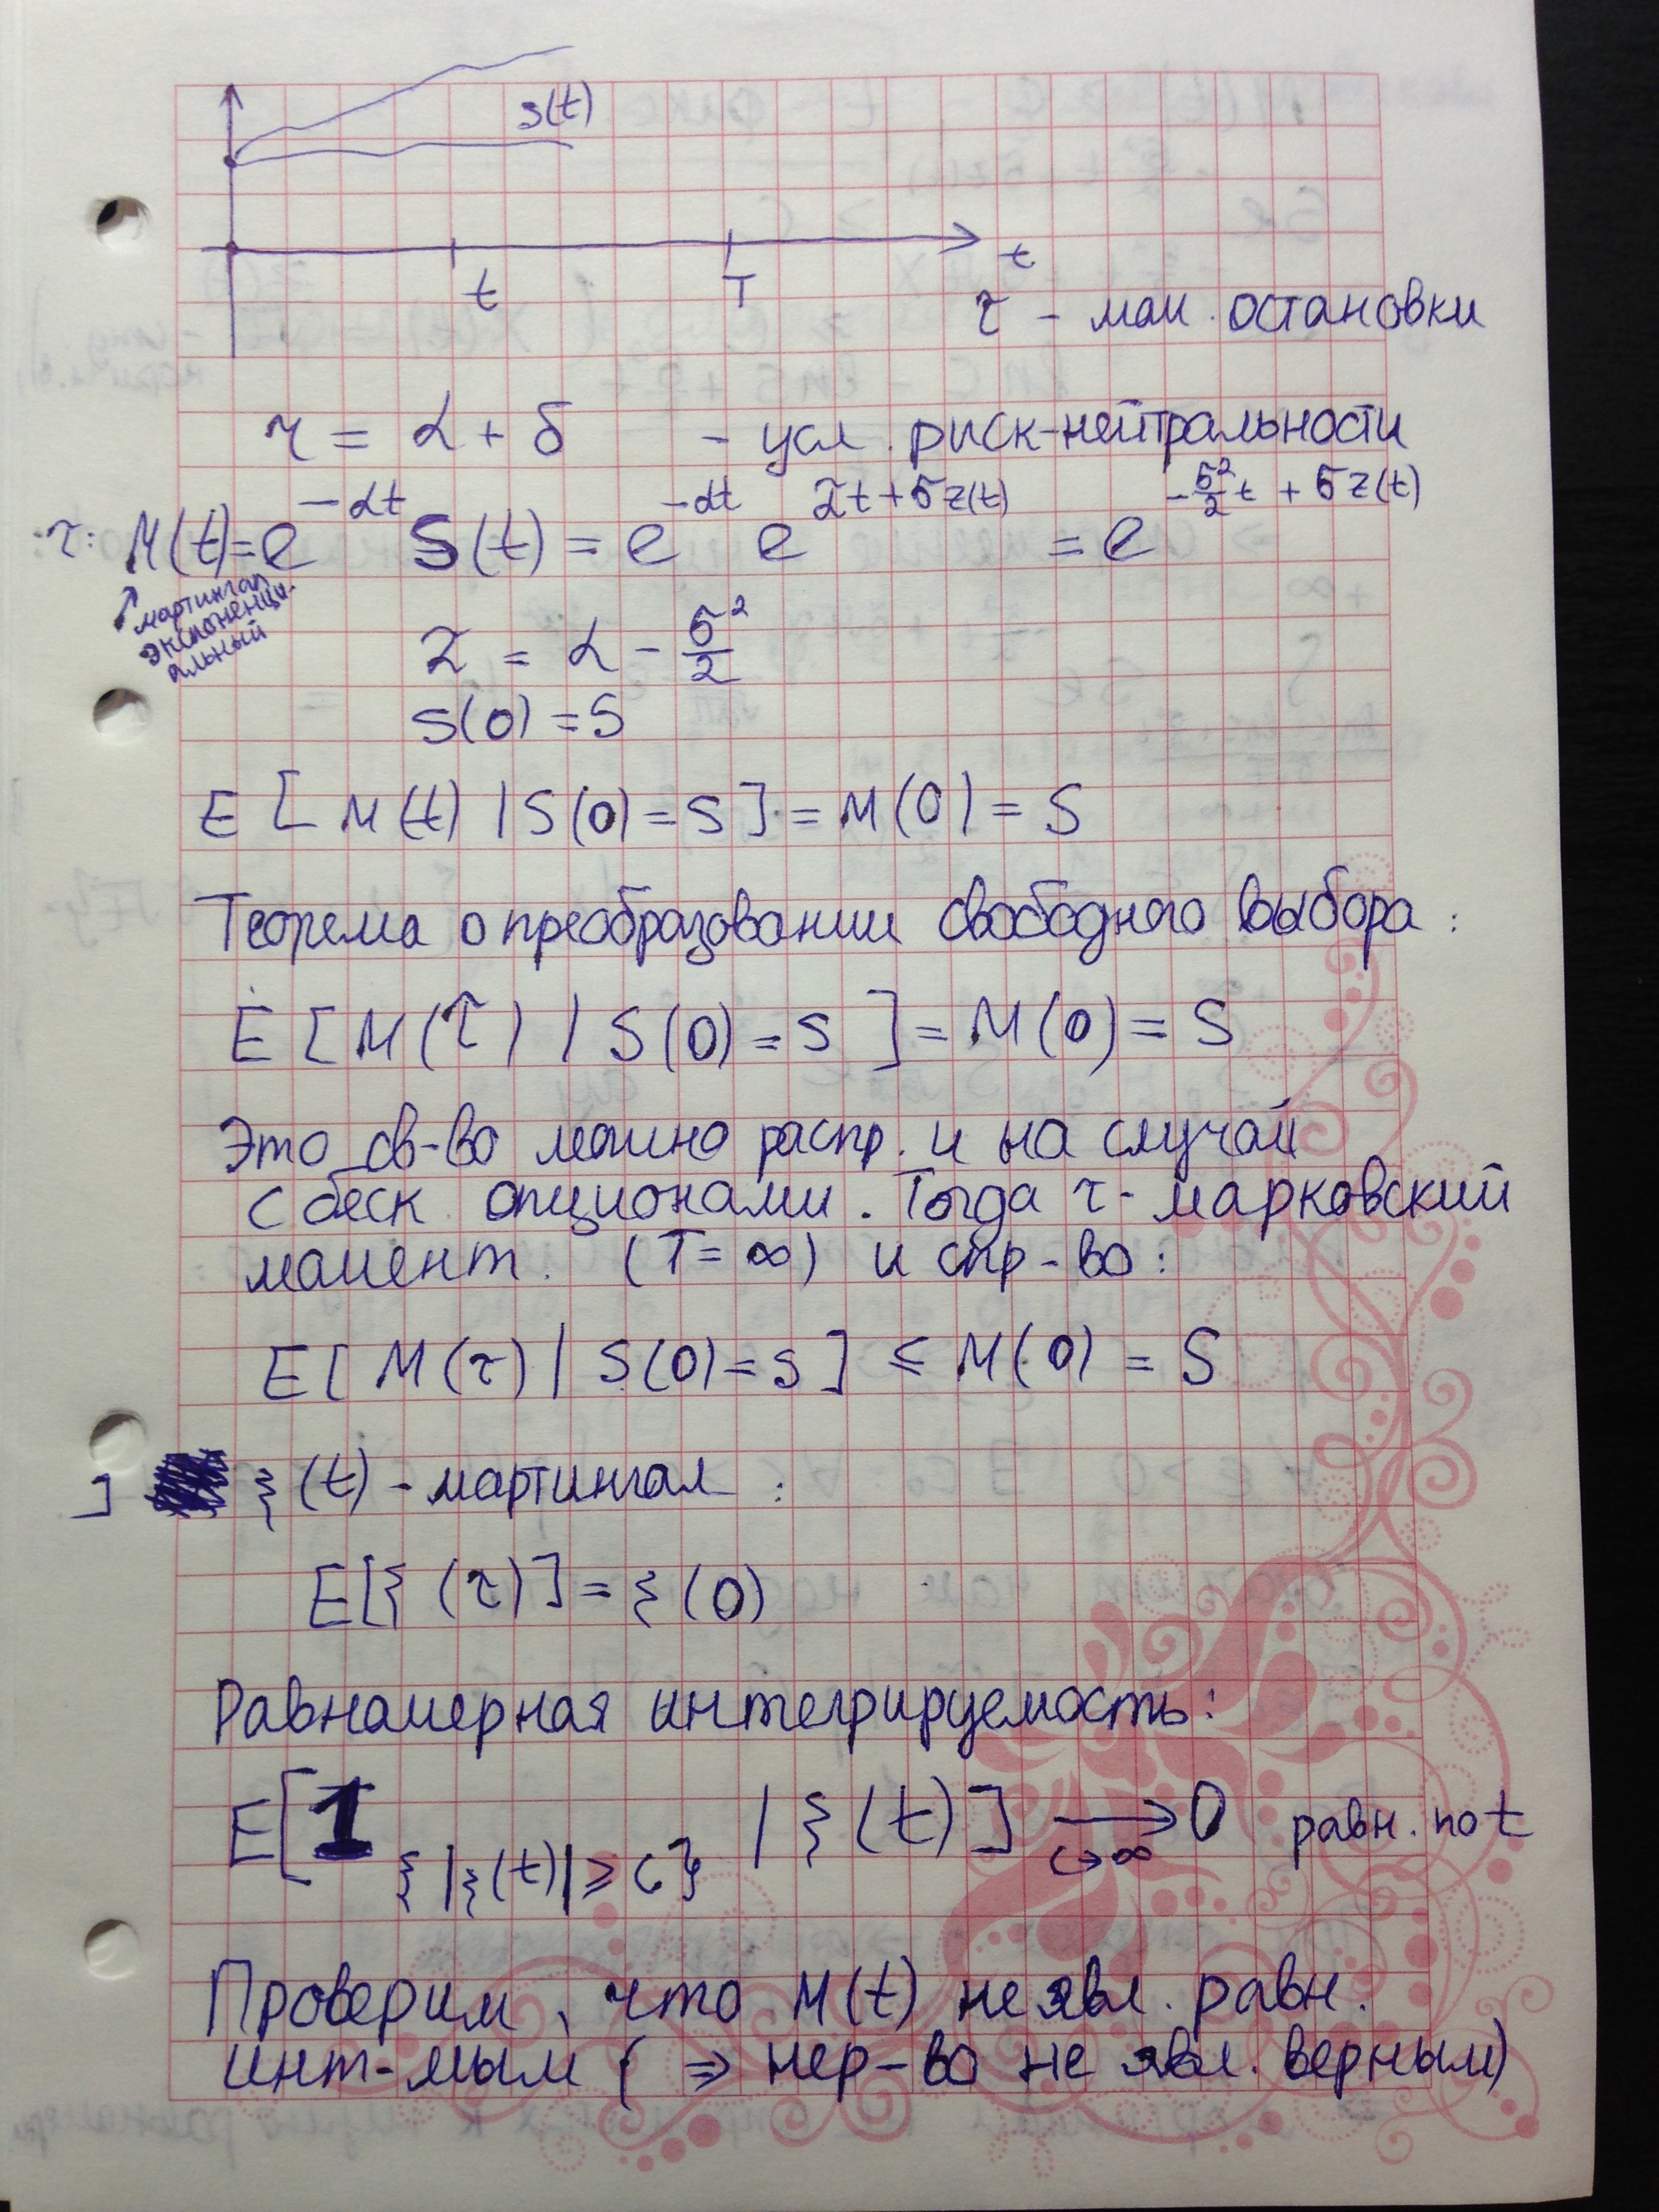 S(t)
t T t
τ - мом. остановки
r = α + δ - усл. риск-нейтральности
τ: M(t) = e^{-αt} S(t) = e^{-αt} e^{λt + σz(t)} = e^{-σ²/2 t + σz(t)}
мартингал
экспоненци-
альный
λ = α - σ²/2
S(0) = S
E [ M(t) | S(0) = S ] = M(0) = S
Теорема о преобразовании свободного выбора :
E [ M(τ) | S(0) = S ] = M(0) = S
Это св-во можно распр. и на случай
с беск. опционами. Тогда τ - марковский
момент. (T = ∞) и спр-во :
E [ M(τ) | S(0) = S ] ≤ M(0) = S
] ξ(t) - мартингал :
E[ξ(τ)] = ξ(0)
Равномерная интегрируемость :
E[ 1_{ |ξ(t)| ≥ c } | ξ(t) ] →_{c→∞} 0 равн. по t
Проверим, что M(t) не явл. равн.
инт-мым ( ⇒ нер-во не явл. верным)